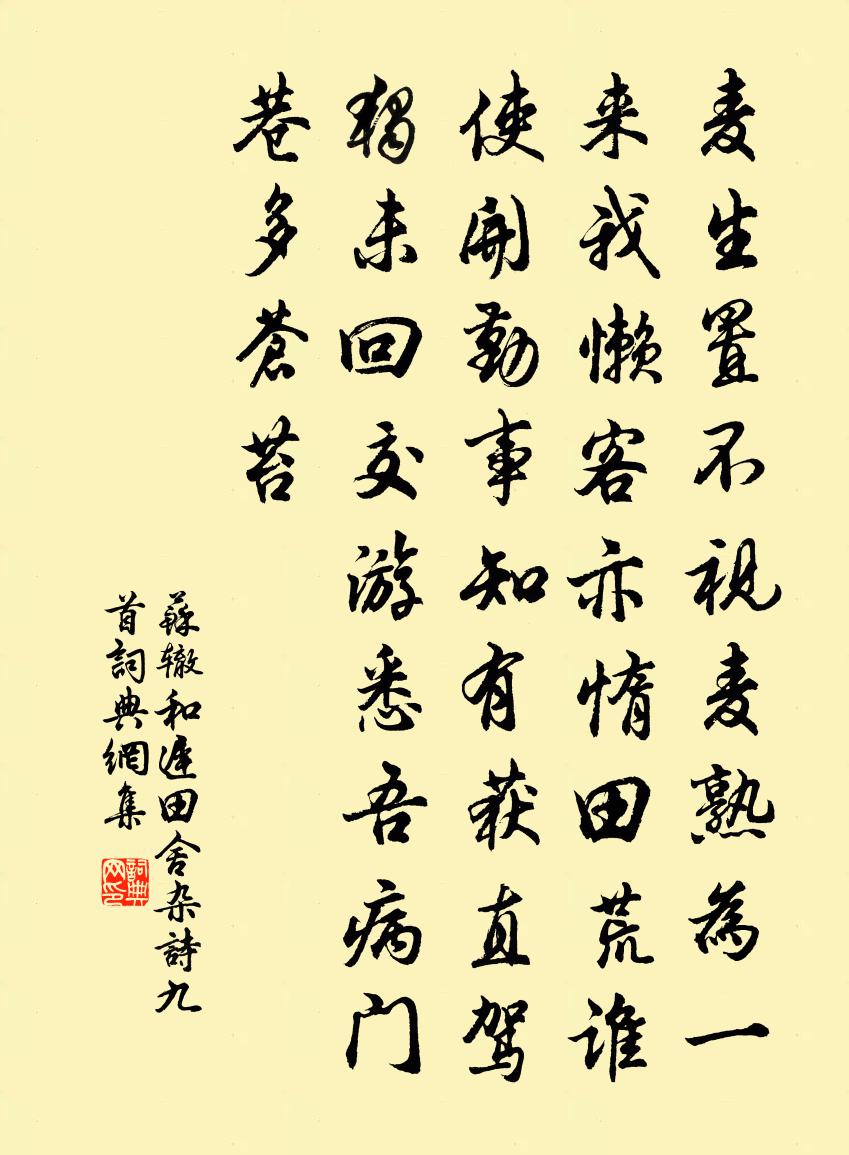 麦生置不视麦熟為一
来我懒客亦惰田荒谁
使開勤事知有获直驾
獨未回交游悉吾病门
巷多蒼苔
蘇辙和遲田舍杂詩九
首詞典網集
詞典网印